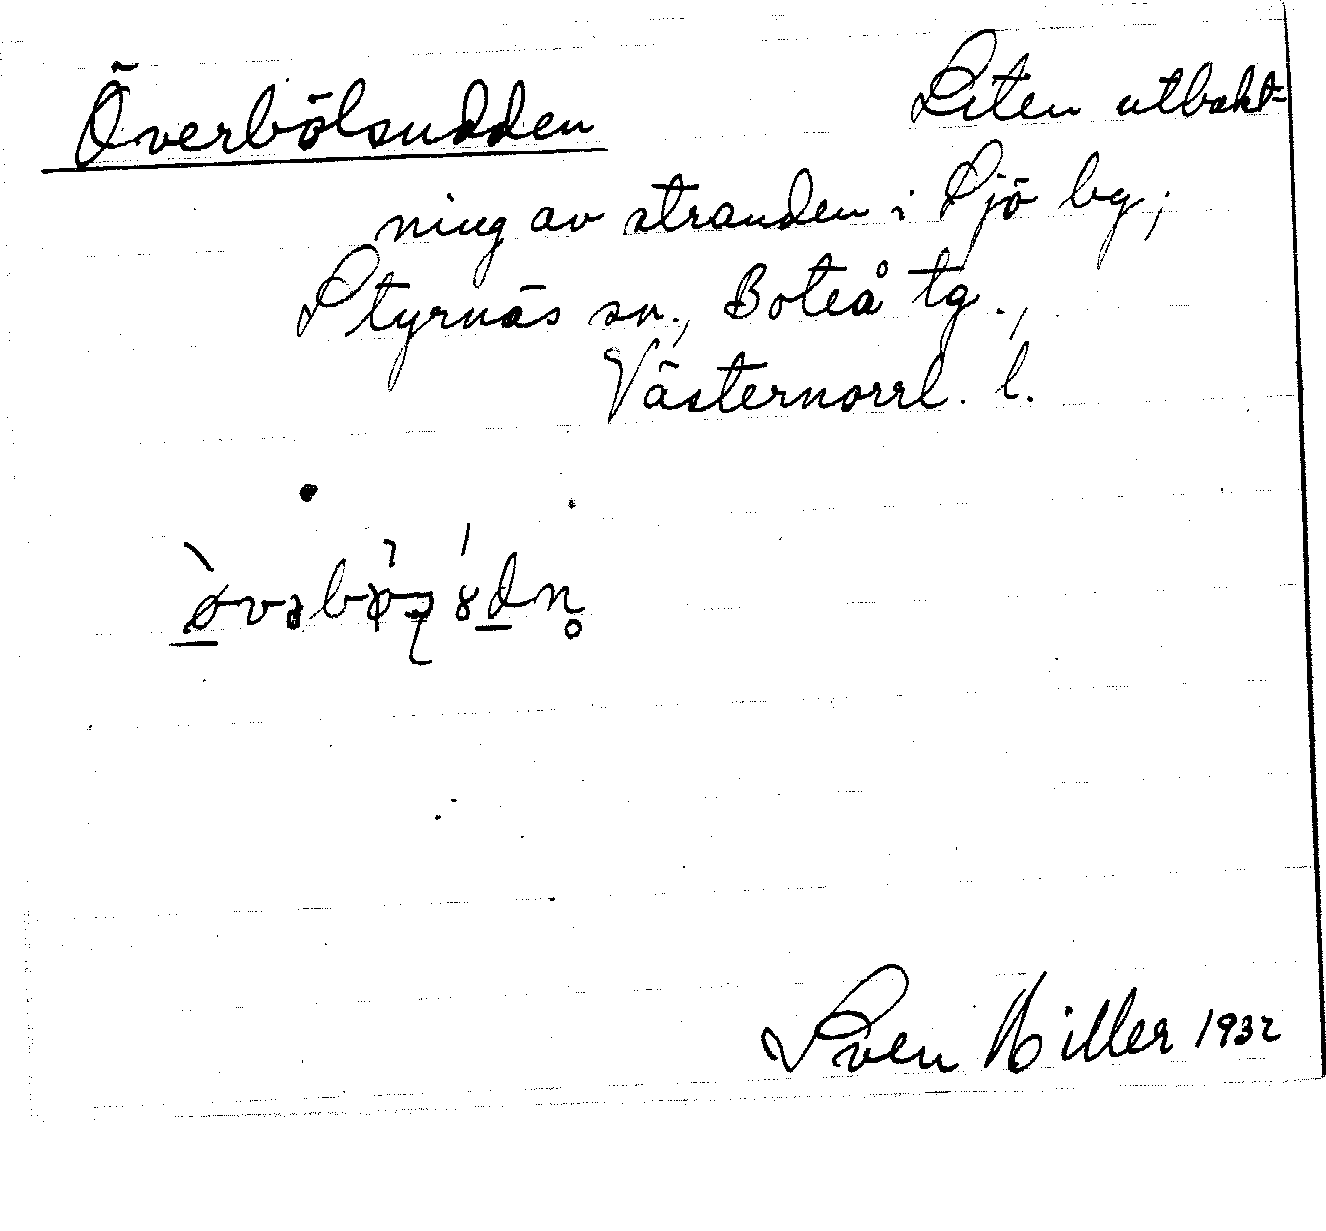 Överbölsudden Liten utbukt=
ning av stranden i Sjö by,
Styrnäs sn., Boteå tg.,
Västernorrl. l.
Sven Hiller 1932